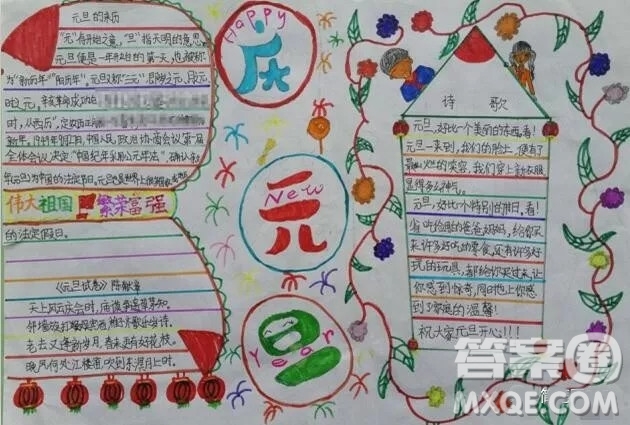 元旦的来历
"元"有开始之意，"旦"指天明的意思。
元旦便是一年开始的第一天，也被称
为"新历年""阳历年"。元旦又称"三元"
时，从西历"
新年。1949年9月27日，中国人民政治协商会议第一届
全体会议决定
年元旦为中国的法定节日。
伟大祖国
繁荣富强
的法定假日。
《元旦试卷》陈献章
天上风云庆会时，庙谟争遗草茅知。
邻墙旋打娱宾酒，稚子齐歌乐岁诗。
老去又逢新岁月，春来更有好花枝。
晚风何处江楼笛，吹到东溟月上时。
Happy
庆
New
元
Year
旦
诗 歌
元旦，好比一个美丽的东西。看！
元旦一来到，我们的脸上，便有了
最灿烂的笑容，我们穿上新衣服
显得多么神气。
元旦，好比一个特别的节日，看！
来许多好吃的零食，还有许多好
玩的玩具，都给你买过来，让
你感到惊奇，同时也让你感
到了家庭的温馨！
祝大家元旦开心！！！
答案圈
MXQE.COM